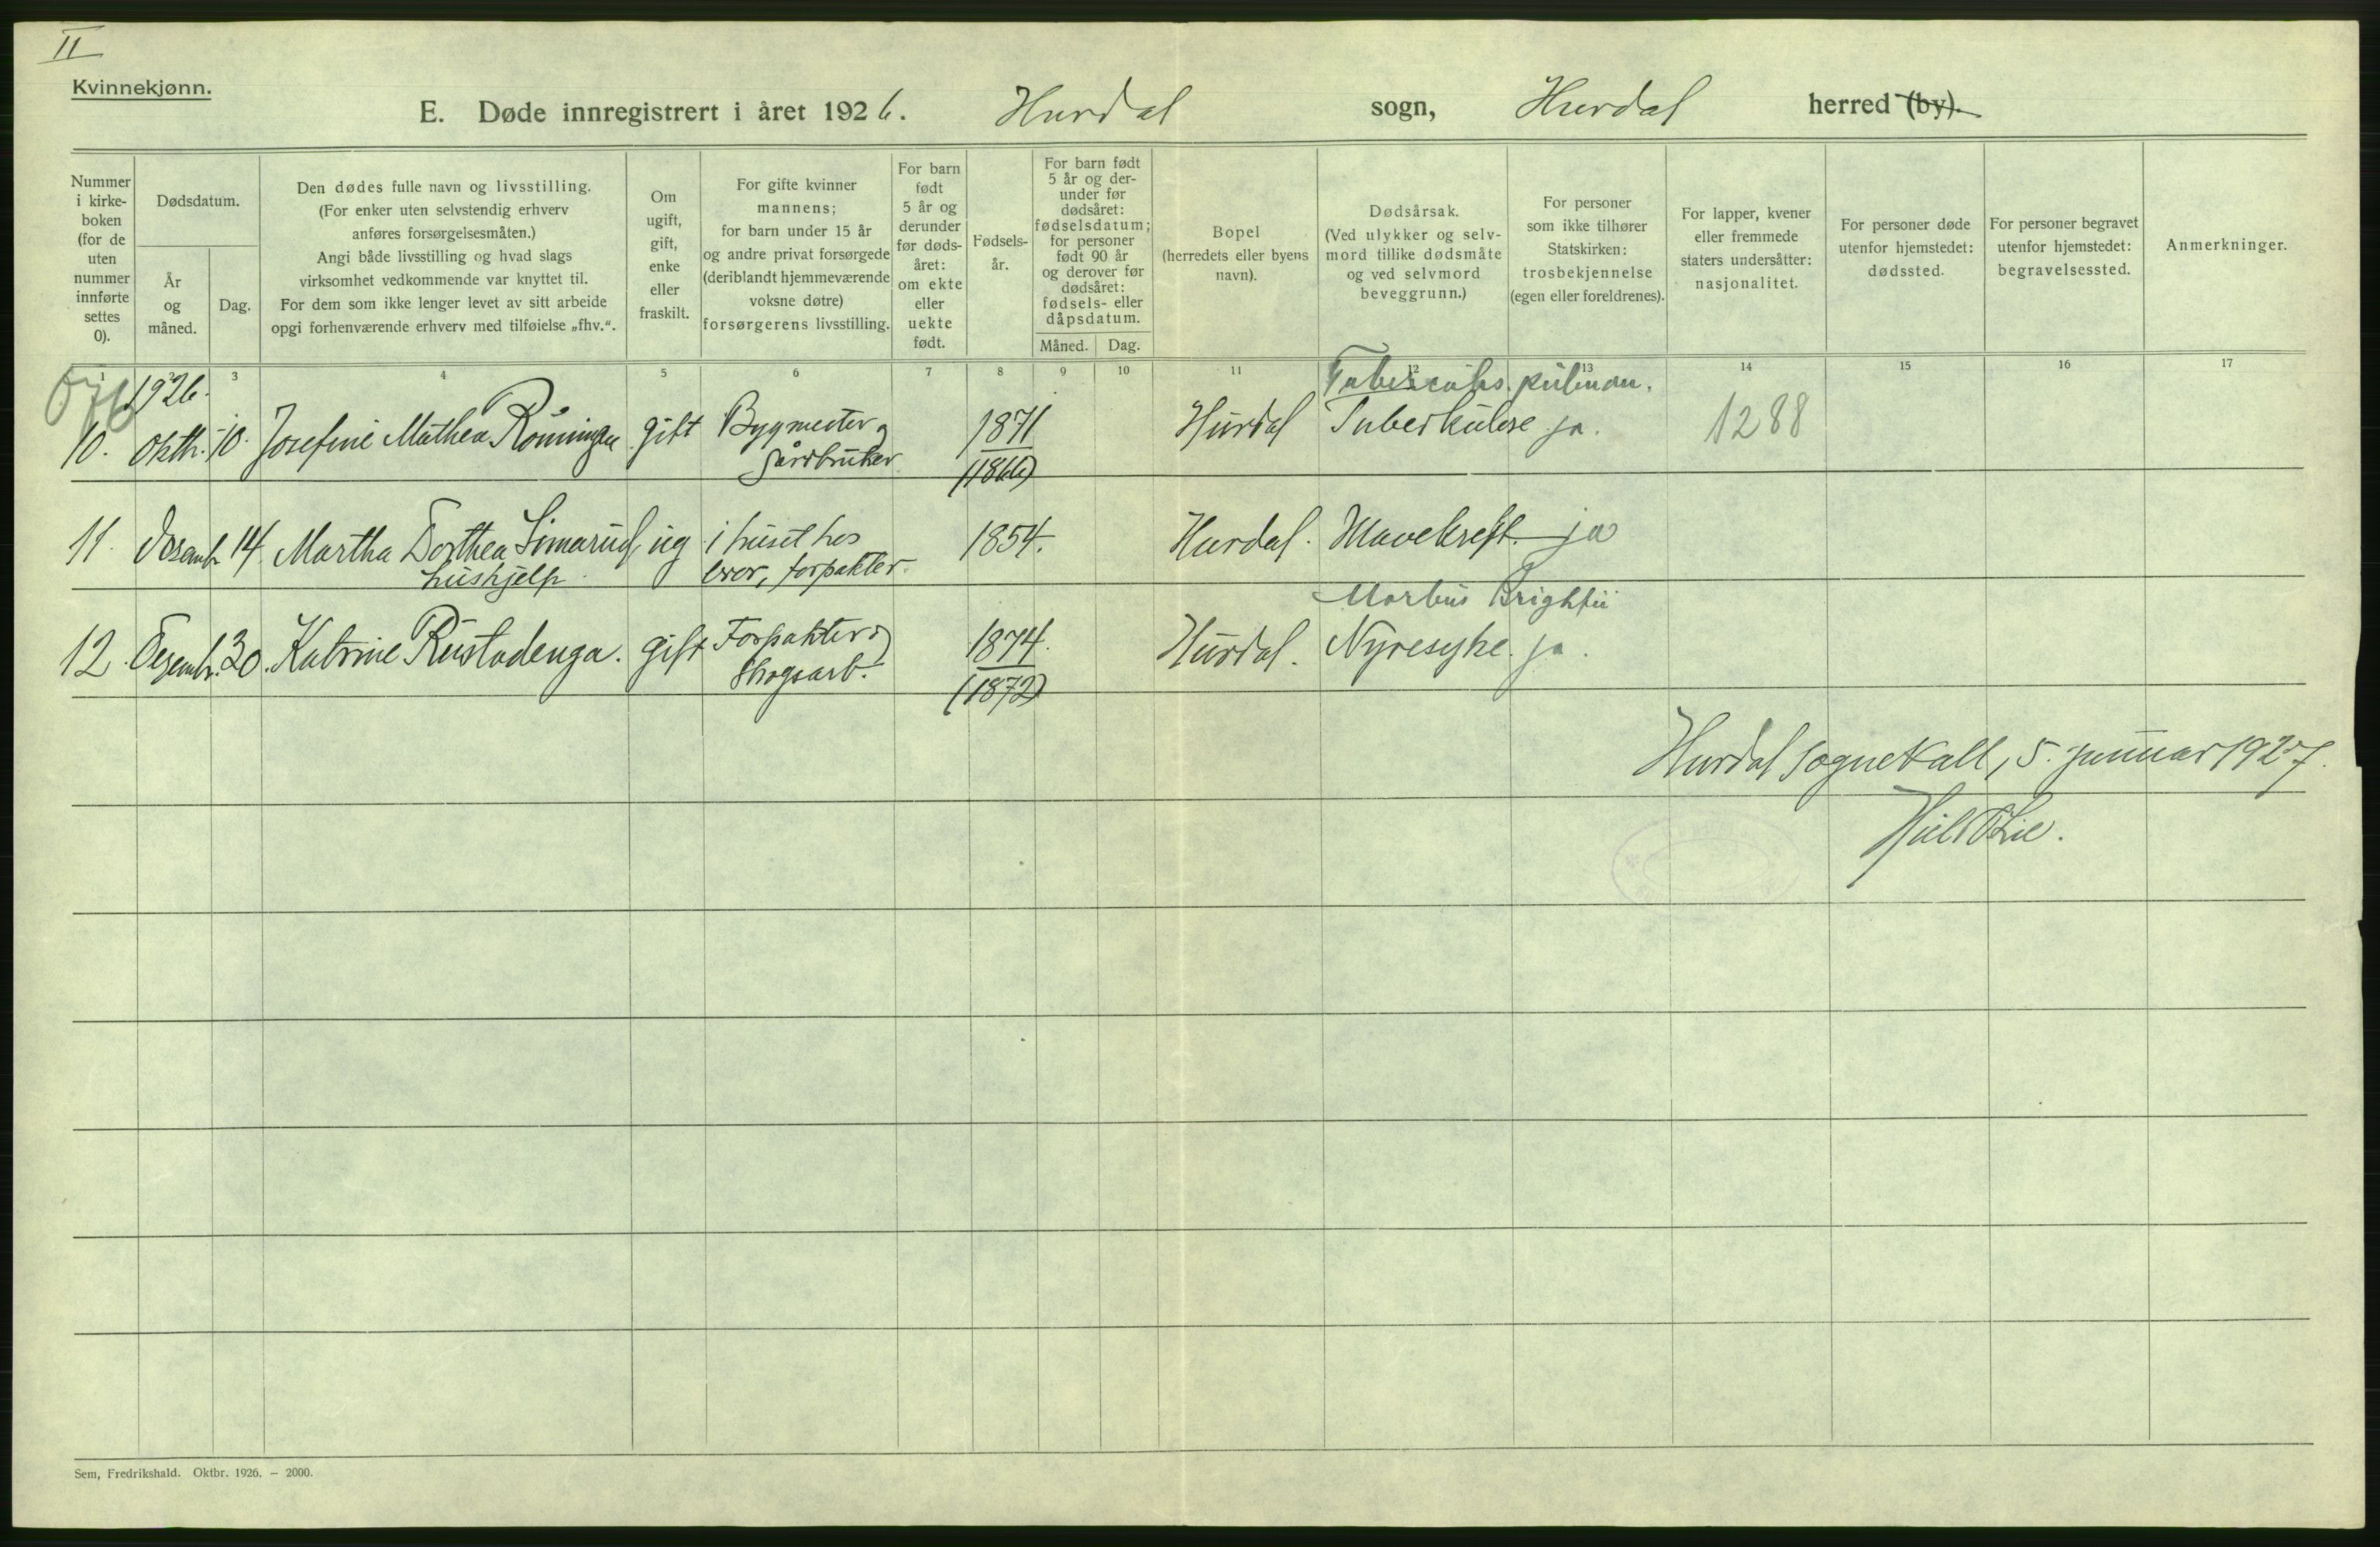 II
Kvinnekjønn.
E. Døde innregistrert i året 1926. Hurdal sogn, Hurdal herred (by).
Nummer i kirkeboken (for de uten nummer innførte settes 0).
Dødsdatum.
År og måned.
Dag.
Den dødes fulle navn og livsstilling.
(For enker uten selvstendig erhverv anføres forsørgelsesmåten.)
Angi både livsstilling og hvad slags virksomhet vedkommende var knyttet til.
For dem som ikke lenger levet av sitt arbeide opgi forhenværende erhverv med tilføielse „fhv.“.
Om ugift, gift, enke eller fraskilt.
For gifte kvinner mannens; for barn under 15 år og andre privat forsørgede (deriblandt hjemmeværende voksne døtre) forsørgerens livsstilling.
For barn født 5 år og derunder før dødsåret: om ekte eller uekte født.
Fødselsår.
For barn født 5 år og derunder før dødsåret: fødselsdatum; for personer født 90 år og derover før dødsåret: fødsels- eller dåpsdatum.
Måned. Dag.
Bopel (herredets eller byens navn).
Dødsårsak. (Ved ulykker og selvmord tillike dødsmåte og ved selvmord beveggrunn.)
For personer som ikke tilhører Statskirken: trosbekjennelse (egen eller foreldrenes).
For lapper, kvener eller fremmede staters undersåtter: nasjonalitet.
For personer døde utenfor hjemstedet: dødssted.
For personer begravet utenfor hjemstedet: begravelsessted.
Anmerkninger.
1 2 3 4 5 6 7 8 9 10 11 12 13 14 15 16 17
1926. Tubercules. pulmon.
10. Oktbr. 10. Josefine Mathea Rönningen gift Bygmester og 1871 Hurdal Tuberkulose ja. 1288
Gårdbruker (1866)
11. Desembr 14. Martha Dorthea Limarud, ug i huset hos 1854. Hurdal. Mavekreft. ja
hushjelp. bror, forpakter.
Morbus Brightii
12. Desembr. 30. Katrine Rustadenga. gift Forpakter og 1874. Hurdal. Nyresyke. ja.
Skogsarb. (1872)
Hurdal sognekall, 5. januar 1927.
Sem, Fredrikshald. Oktbr. 1926. — 2000.